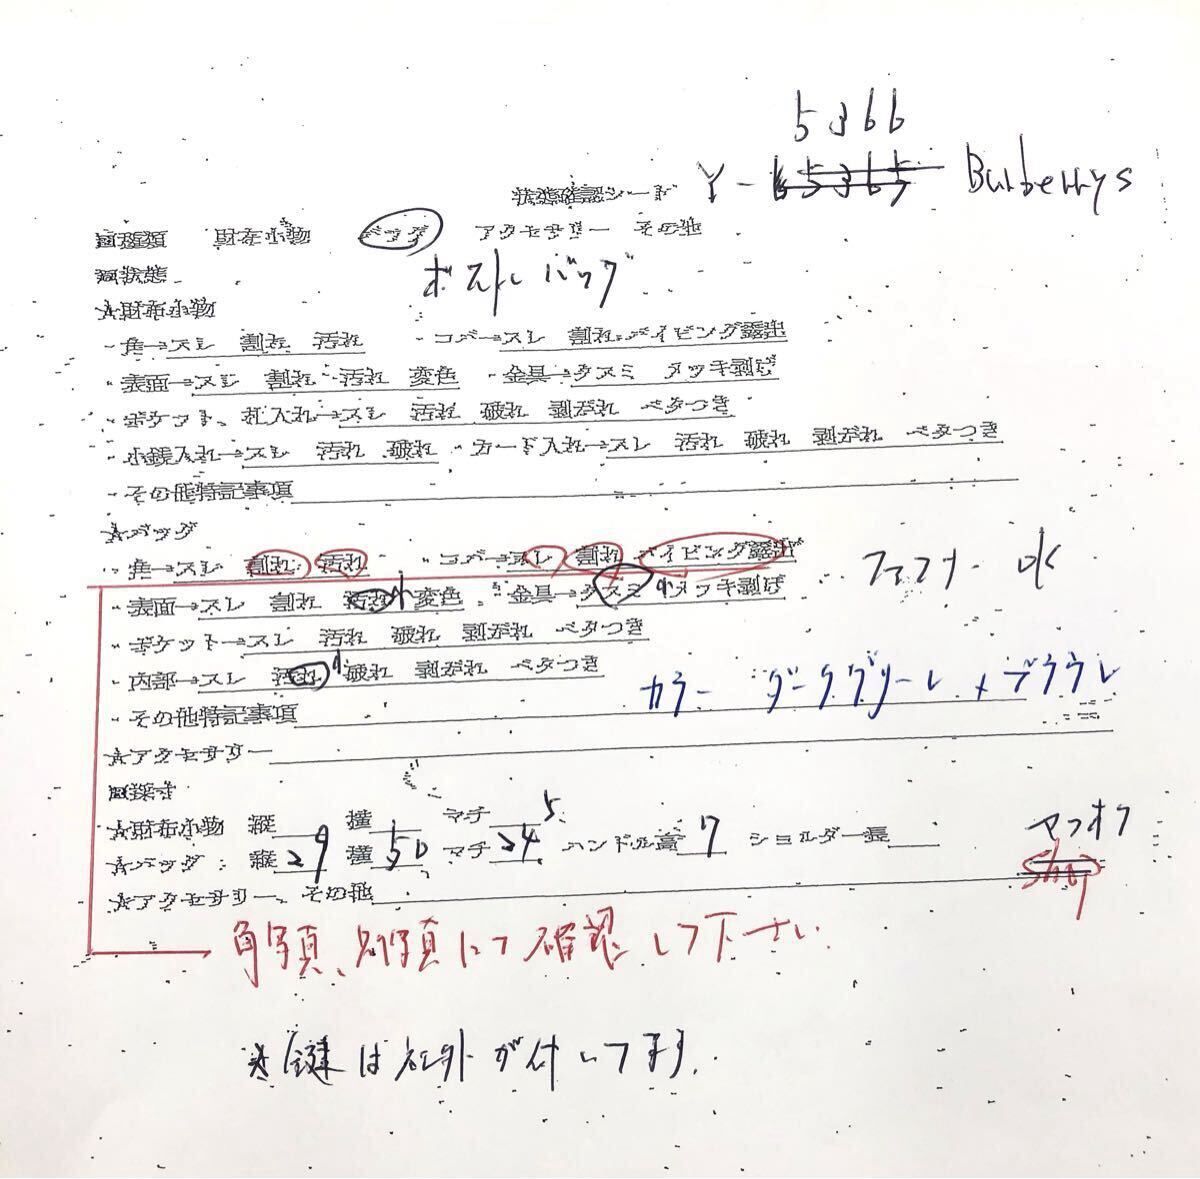 5366
Y-65365 Burberrys
状態確認シート
□種類 財布小物 バッグ アクセサリー その他
ボストンバッグ
□状態
☆財布小物
・角→スレ 割れ 汚れ ・コバ→スレ 割れ パイピング露出
・表面→スレ 割れ 汚れ 変色 ・金具→クスミ メッキ剥げ
・ポケット、札入れ→スレ 汚れ 破れ 剥がれ ベタつき
・小銭入れ→スレ 汚れ 破れ ・カード入れ→スレ 汚れ 破れ 剥がれ ベタつき
・その他特記事項
☆バッグ
・角→スレ 割れ 汚れ ・コバ→スレ 割れ パイピング露出
ファスナー 水
・表面→スレ 割れ 汚れ小 変色 ・金具→クスミ小 メッキ剥げ
・ポケット→スレ 汚れ 破れ 剥がれ ベタつき
・内部→スレ 汚れ小 破れ 剥がれ ベタつき
カラー ダークグリーン
・その他特記事項
☆アクセサリー
□採寸
☆財布小物 縦 横 マチ
☆バッグ:縦29 横50 マチ24.5 ハンドル高7 ショルダー長
ヤフオク
shop
☆アクセサリー、その他
角写真、別写真にて確認して下さい。
鍵は
付いてます。